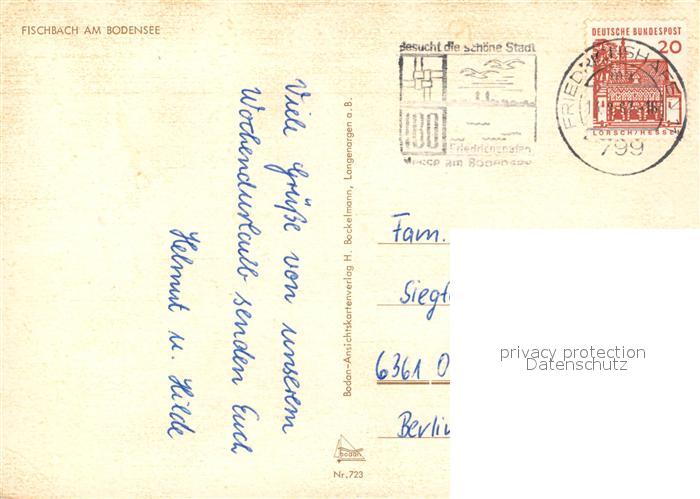 FISCHBACH AM BODENSEE
Viele Grüße von unserem
Wochendurlaub senden Euch
Helmut u. Hilde
Bodan-Ansichtskartenverlag H. Bockelmann, Langenargen a.B.
bodan
Nr. 723
Besucht die schöne Stadt
IBO
Friedrichshafen
Messe am Bodensee
FRIEDRICHSHAFEN
799
DEUTSCHE BUNDESPOST
20
LORSCH/HESSEN
Fam.
6361 O
Berlin
privacy protection
Datenschutz